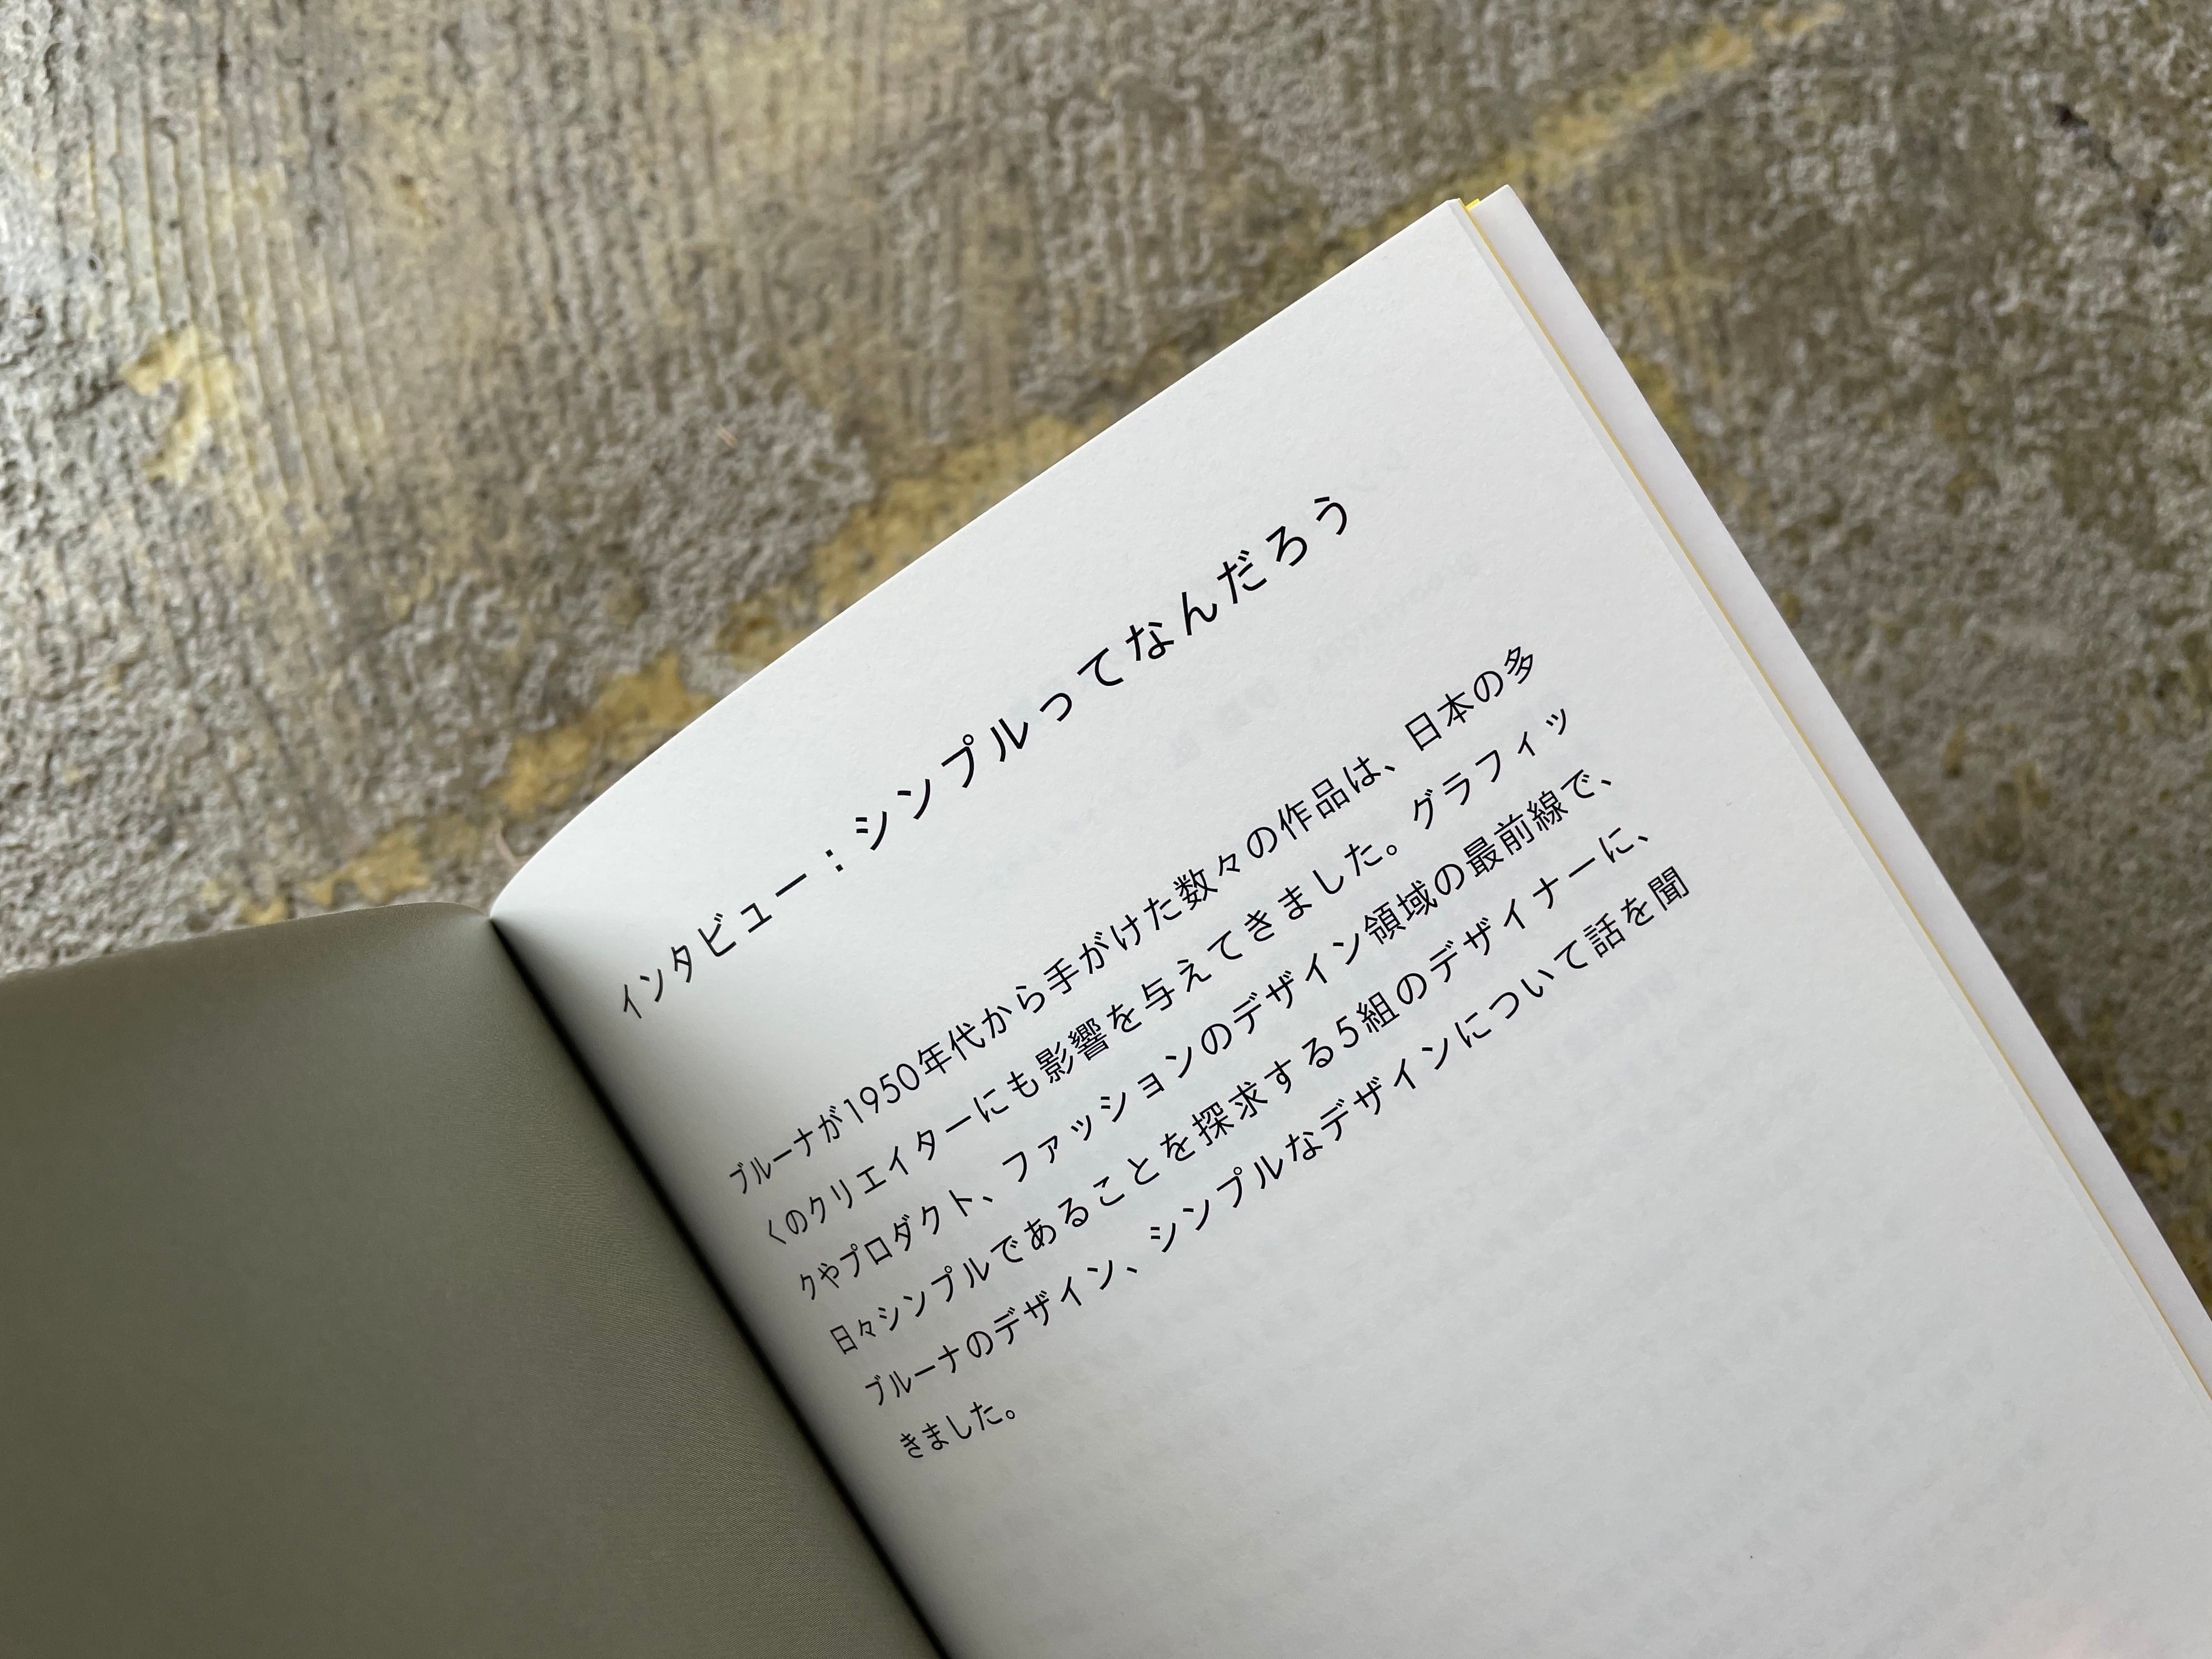 インタビュー：シンプルってなんだろう
ブルーナが1950年代から手がけた数々の作品は、日本の多
くのクリエイターにも影響を与えてきました。グラフィッ
クやプロダクト、ファッションのデザイン領域の最前線で、
日々シンプルであることを探求する5組のデザイナーに、
ブルーナのデザイン、シンプルなデザインについて話を聞
きました。